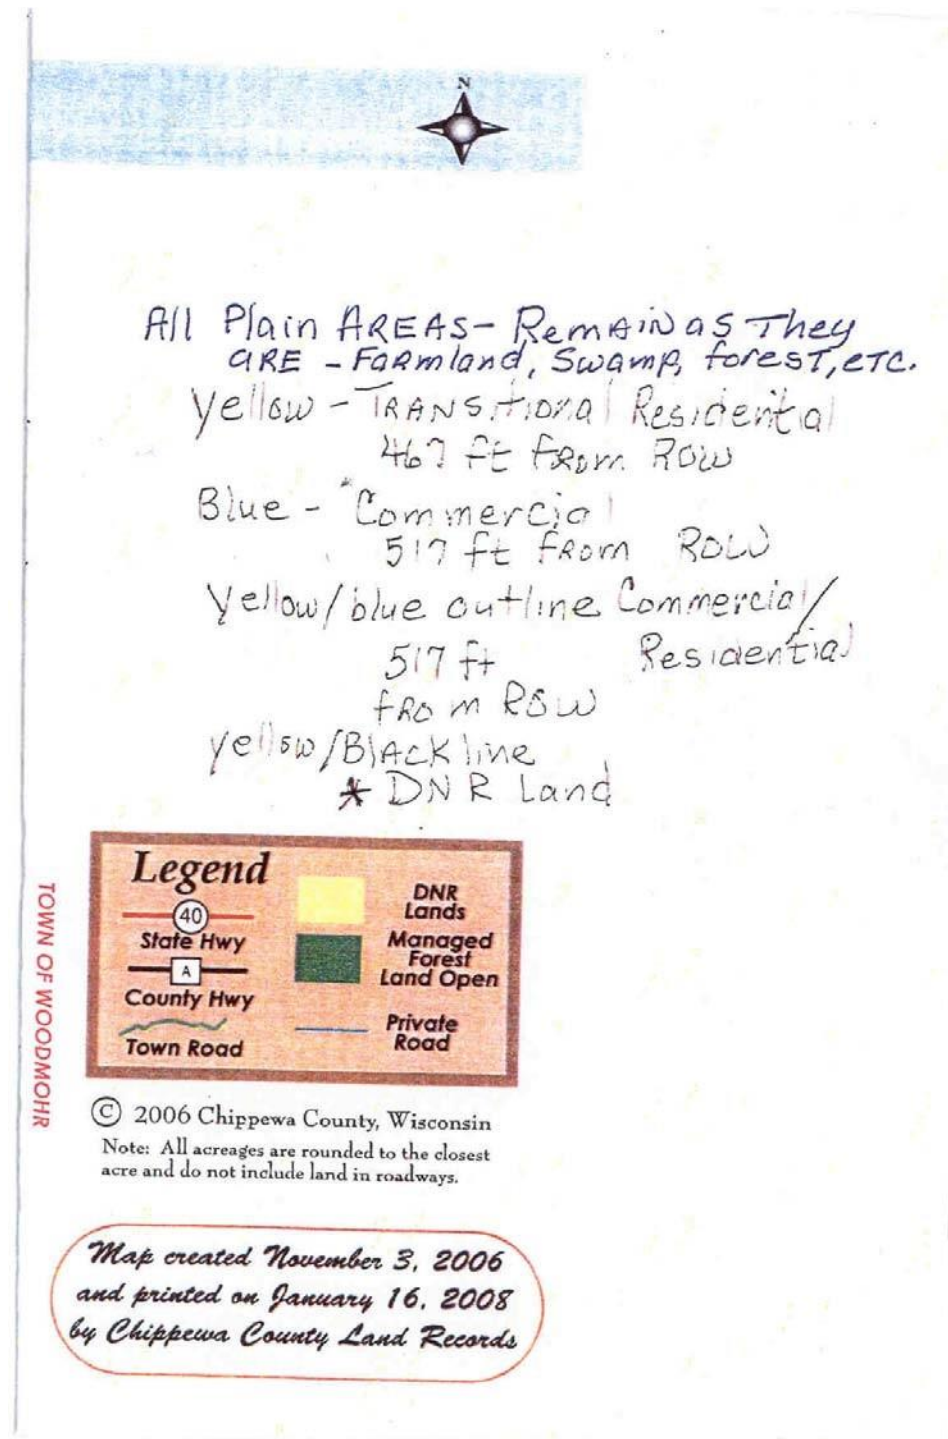 N
All Plain AREAS- Remain as They
ARE - Farmland, Swamp, forest, etc.
Yellow - Transitional Residential
467 ft from ROW
Blue - *Commercial
517 ft from ROW
Yellow/blue outline Commercial/
Residential
517 ft
from ROW
yellow/Black line
* DNR Land
TOWN OF WOODMOHR
Legend
40
State Hwy
A
County Hwy
Town Road
DNR
Lands
Managed
Forest
Land Open
Private
Road
© 2006 Chippewa County, Wisconsin
Note: All acreages are rounded to the closest
acre and do not include land in roadways.
Map created November 3, 2006
and printed on January 16, 2008
by Chippewa County Land Records